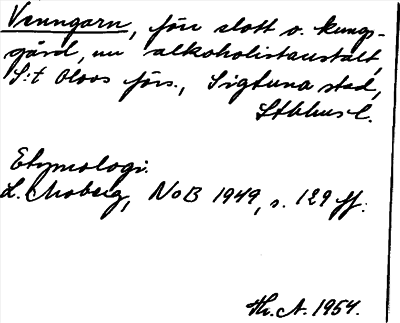 Venngarn, förr slott o. kungs-
gård, nu alkoholistanstalt,
S:t Olovs förs., Sigtuna stad,
Sthlms l.
Etymologi.
L. Moberg, NoB 1949, s. 129 ff.
Hr. A. 1954.